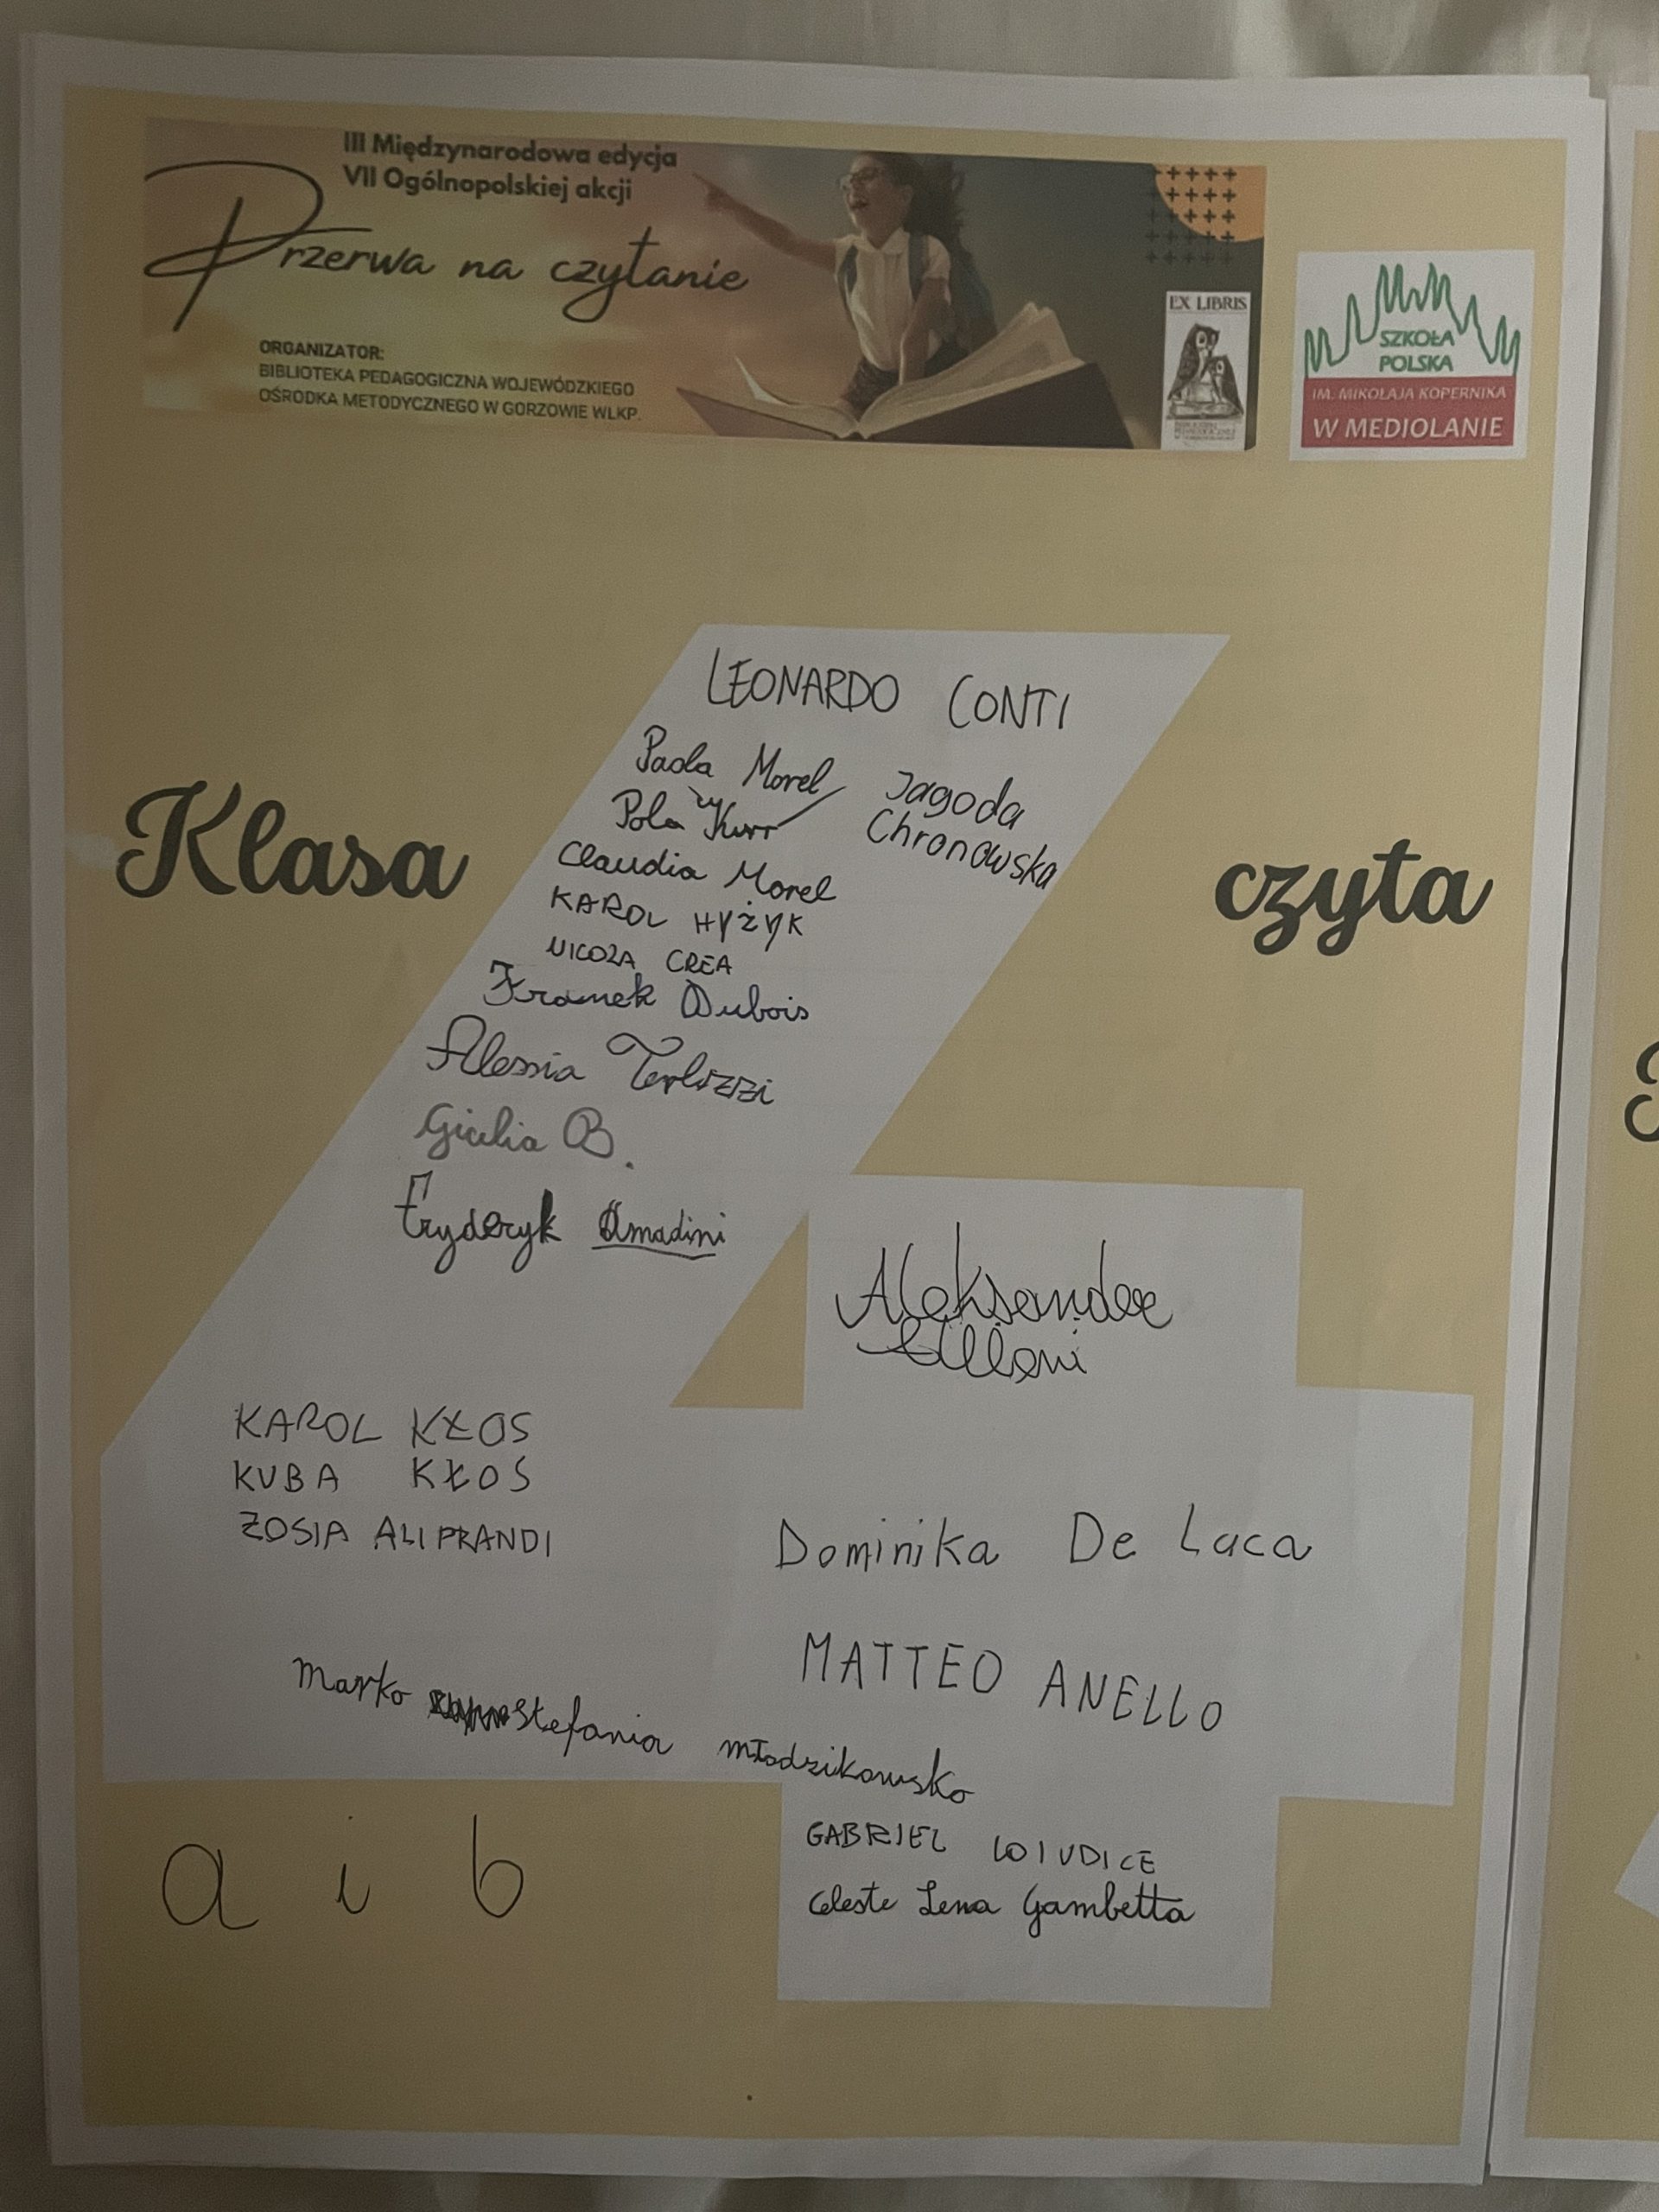 III Międzynarodowa edycja
VII Ogólnopolskiej akcji
Przerwa na czytanie
ORGANIZATOR:
BIBLIOTEKA PEDAGOGICZNA WOJEWÓDZKIEGO
OŚRODKA METODYCZNEGO W GORZOWIE WLKP.
EX LIBRIS
SZKOŁA
POLSKA
IM. MIKOŁAJA KOPERNIKA
W MEDIOLANIE
LEONARDO CONTI
Paola Morel
Jagoda
Chronowska
Pola
Claudia Morel
KAROL HYŻYK
NICOLA CREA
Franek Dubois
Klasa
czyta
Alessia Terlizzi
Giulia B.
Fryderyk Amadini
Aleksander
KAROL KŁOS
KUBA KŁOS
ZOSIA ALIPRANDI
Dominika De Luca
MATTEO ANELLO
Marko
Stefania Młodzikowska
GABRIEL LOIUDICE
Celeste Lena Gambetta
a i b